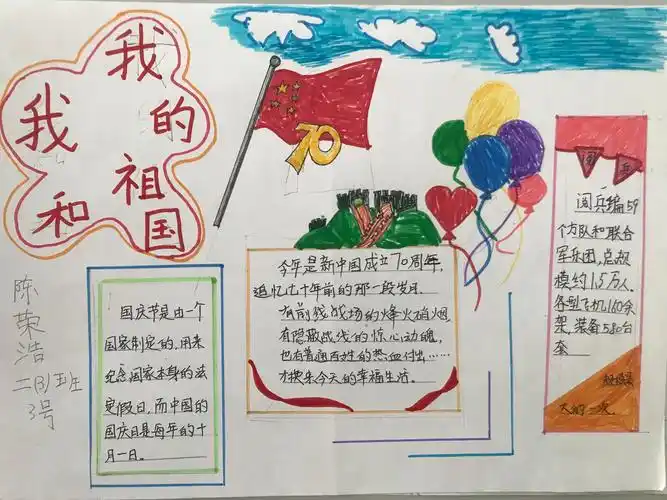 我和我的祖国
70
陈荣浩
二(3)班
3号
国庆节是由一个
国家制定的,用来
纪念国家本身的法
定假日,而中国的
国庆日是每年的十
月一日。
今年是新中国成立70周年,
追忆七十年前的那一段岁月.
有前线战场的烽火硝烟
有隐蔽战线的惊心动魄,
也有普通百姓的热血付出……
才换来今天的幸福生活。
阅兵
阅兵编59
个方队和联合
军乐团,总规
模约1.5万人.
各型飞机160余
架,装备580台
套
大的一次.